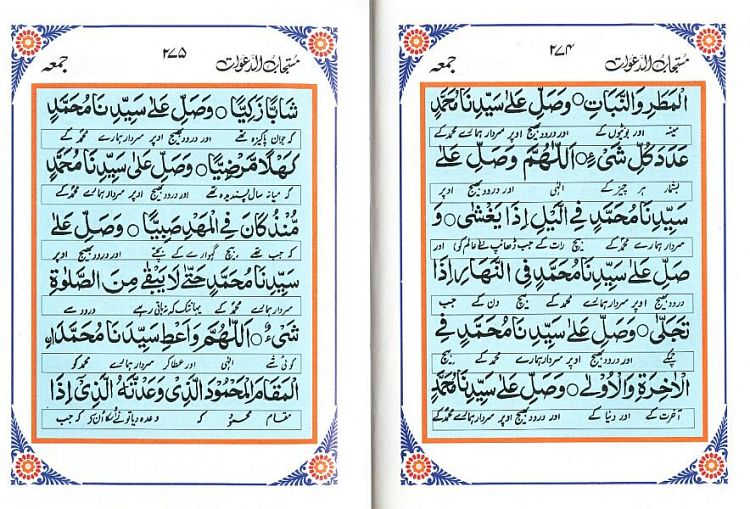 مستجاب الدعوات ۲۷۴ جمعہ
الْمَطَرِ وَالنَّبَاتِ ○ وَصَلِّ عَلٰى سَيِّدِنَا مُحَمَّدٍ
مینہ اور بوٹیوں کے اور درود بھیج اوپر سردار ہمارے محمد کے
عَدَدَ كُلِّ شَيْءٍ ○ اَللّٰهُمَّ وَصَلِّ عَلٰى
بشمار ہر چیز کے الٰہی اور درود بھیج اوپر
سَيِّدِنَا مُحَمَّدٍ فِي الَّيْلِ اِذَا يَغْشٰى ○ وَ
سردار ہمارے محمد کے بیچ رات کے جب ڈھانپ لے عالم کو اور
صَلِّ عَلٰى سَيِّدِنَا مُحَمَّدٍ فِي النَّهَارِ اِذَا
درود بھیج اوپر سردار ہمارے محمد کے بیچ دن کے جب
تَجَلّٰى ○ وَصَلِّ عَلٰى سَيِّدِنَا مُحَمَّدٍ فِي
چمکے اور درود بھیج اوپر سردار ہمارے محمد کے بیچ
الْاٰخِرَةِ وَالْاُوْلٰى ○ وَصَلِّ عَلٰى سَيِّدِنَا مُحَمَّدٍ
آخرت کے اور دنیا کے اور درود بھیج اوپر سردار ہمارے محمد کے
مستجاب الدعوات ۲۷۵ جمعہ
شَابًّا زَكِيًّا ○ وَصَلِّ عَلٰى سَيِّدِنَا مُحَمَّدٍ
کہ جوان پاکیزہ تھے اور درود بھیج اوپر سردار ہمارے محمد کے
كَهْلًا مَّرْضِيًّا ○ وَصَلِّ عَلٰى سَيِّدِنَا مُحَمَّدٍ
کہ میانہ سال پسندیدہ تھے اور درود بھیج اوپر سردار ہمارے محمد کے
مُّنْذُ كَانَ فِي الْمَهْدِ صَبِيًّا ○ وَصَلِّ عَلٰى
کہ جب تھے بیچ گہوارے کے بچے اور درود بھیج اوپر
سَيِّدِنَا مُحَمَّدٍ حَتّٰى لَا يَبْقٰى مِنَ الصَّلٰوةِ
سردار ہمارے محمد کے یہانتک کہ نہ باقی رہے درود سے
شَيْءٌ ○ اَللّٰهُمَّ وَاَعْطِ سَيِّدَنَا مُحَمَّدَاۨ
کوئی شے الٰہی اور عطا کر سردار ہمارے محمد کو
الْمَقَامَ الْمَحْمُوْدَ الَّذِيْ وَعَدْتَّهُ الَّذِيْ اِذَا
مقام محمود کو وعدہ دیا تو نے انکو کہ جب